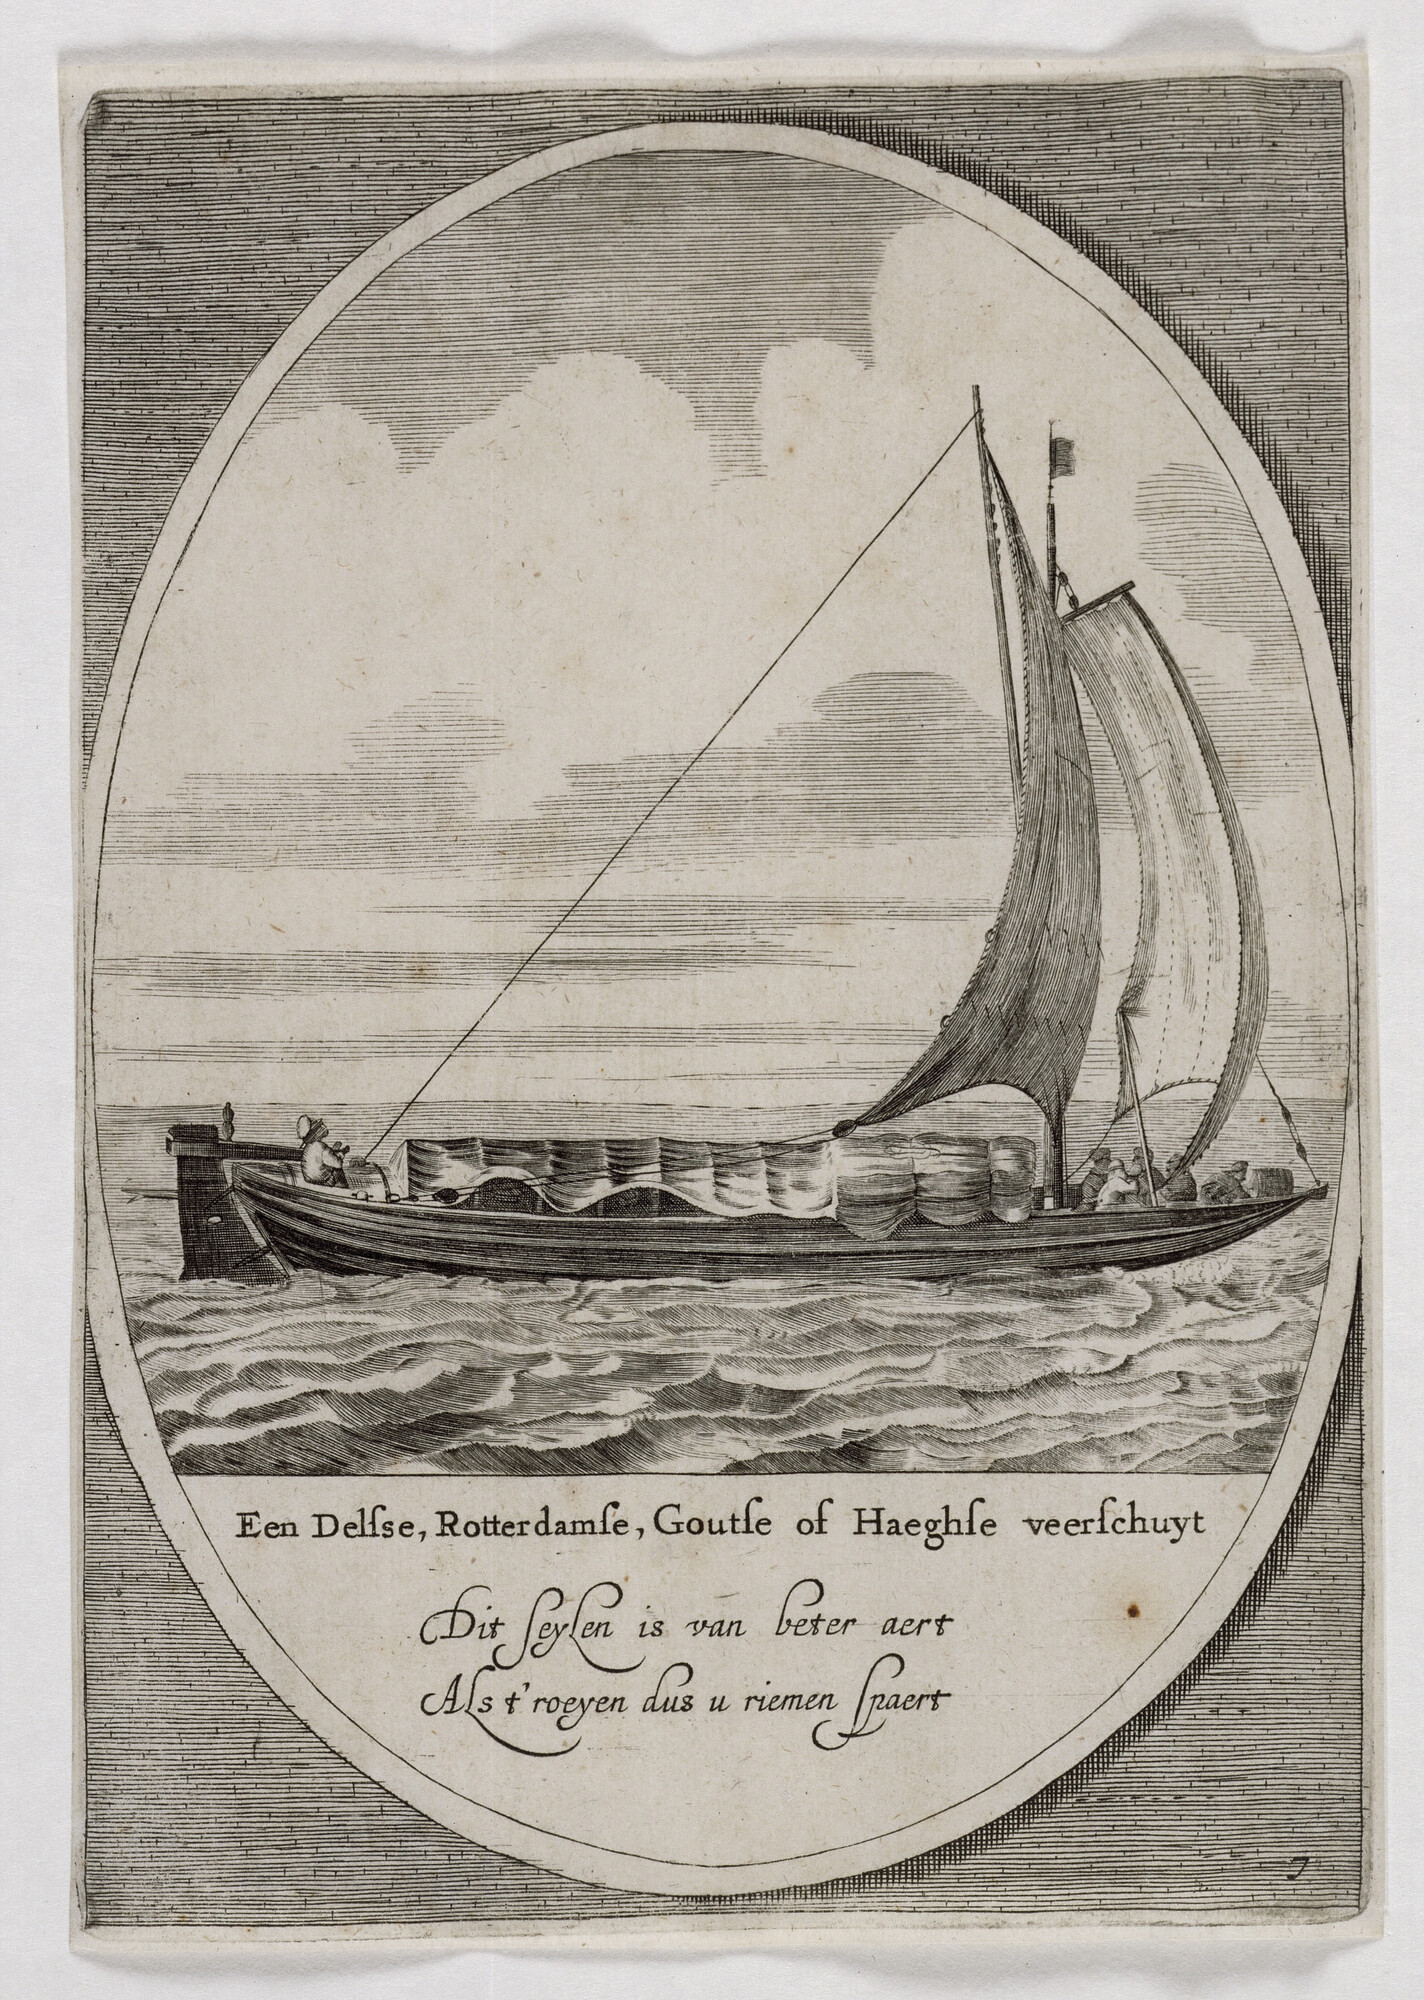 Een Delfse, Rotterdamſe, Goutſe of Haeghſe veerſchuyt
Dit ſeylen is van beter aert
Als t'roeyen dus u riemen ſpaert
7